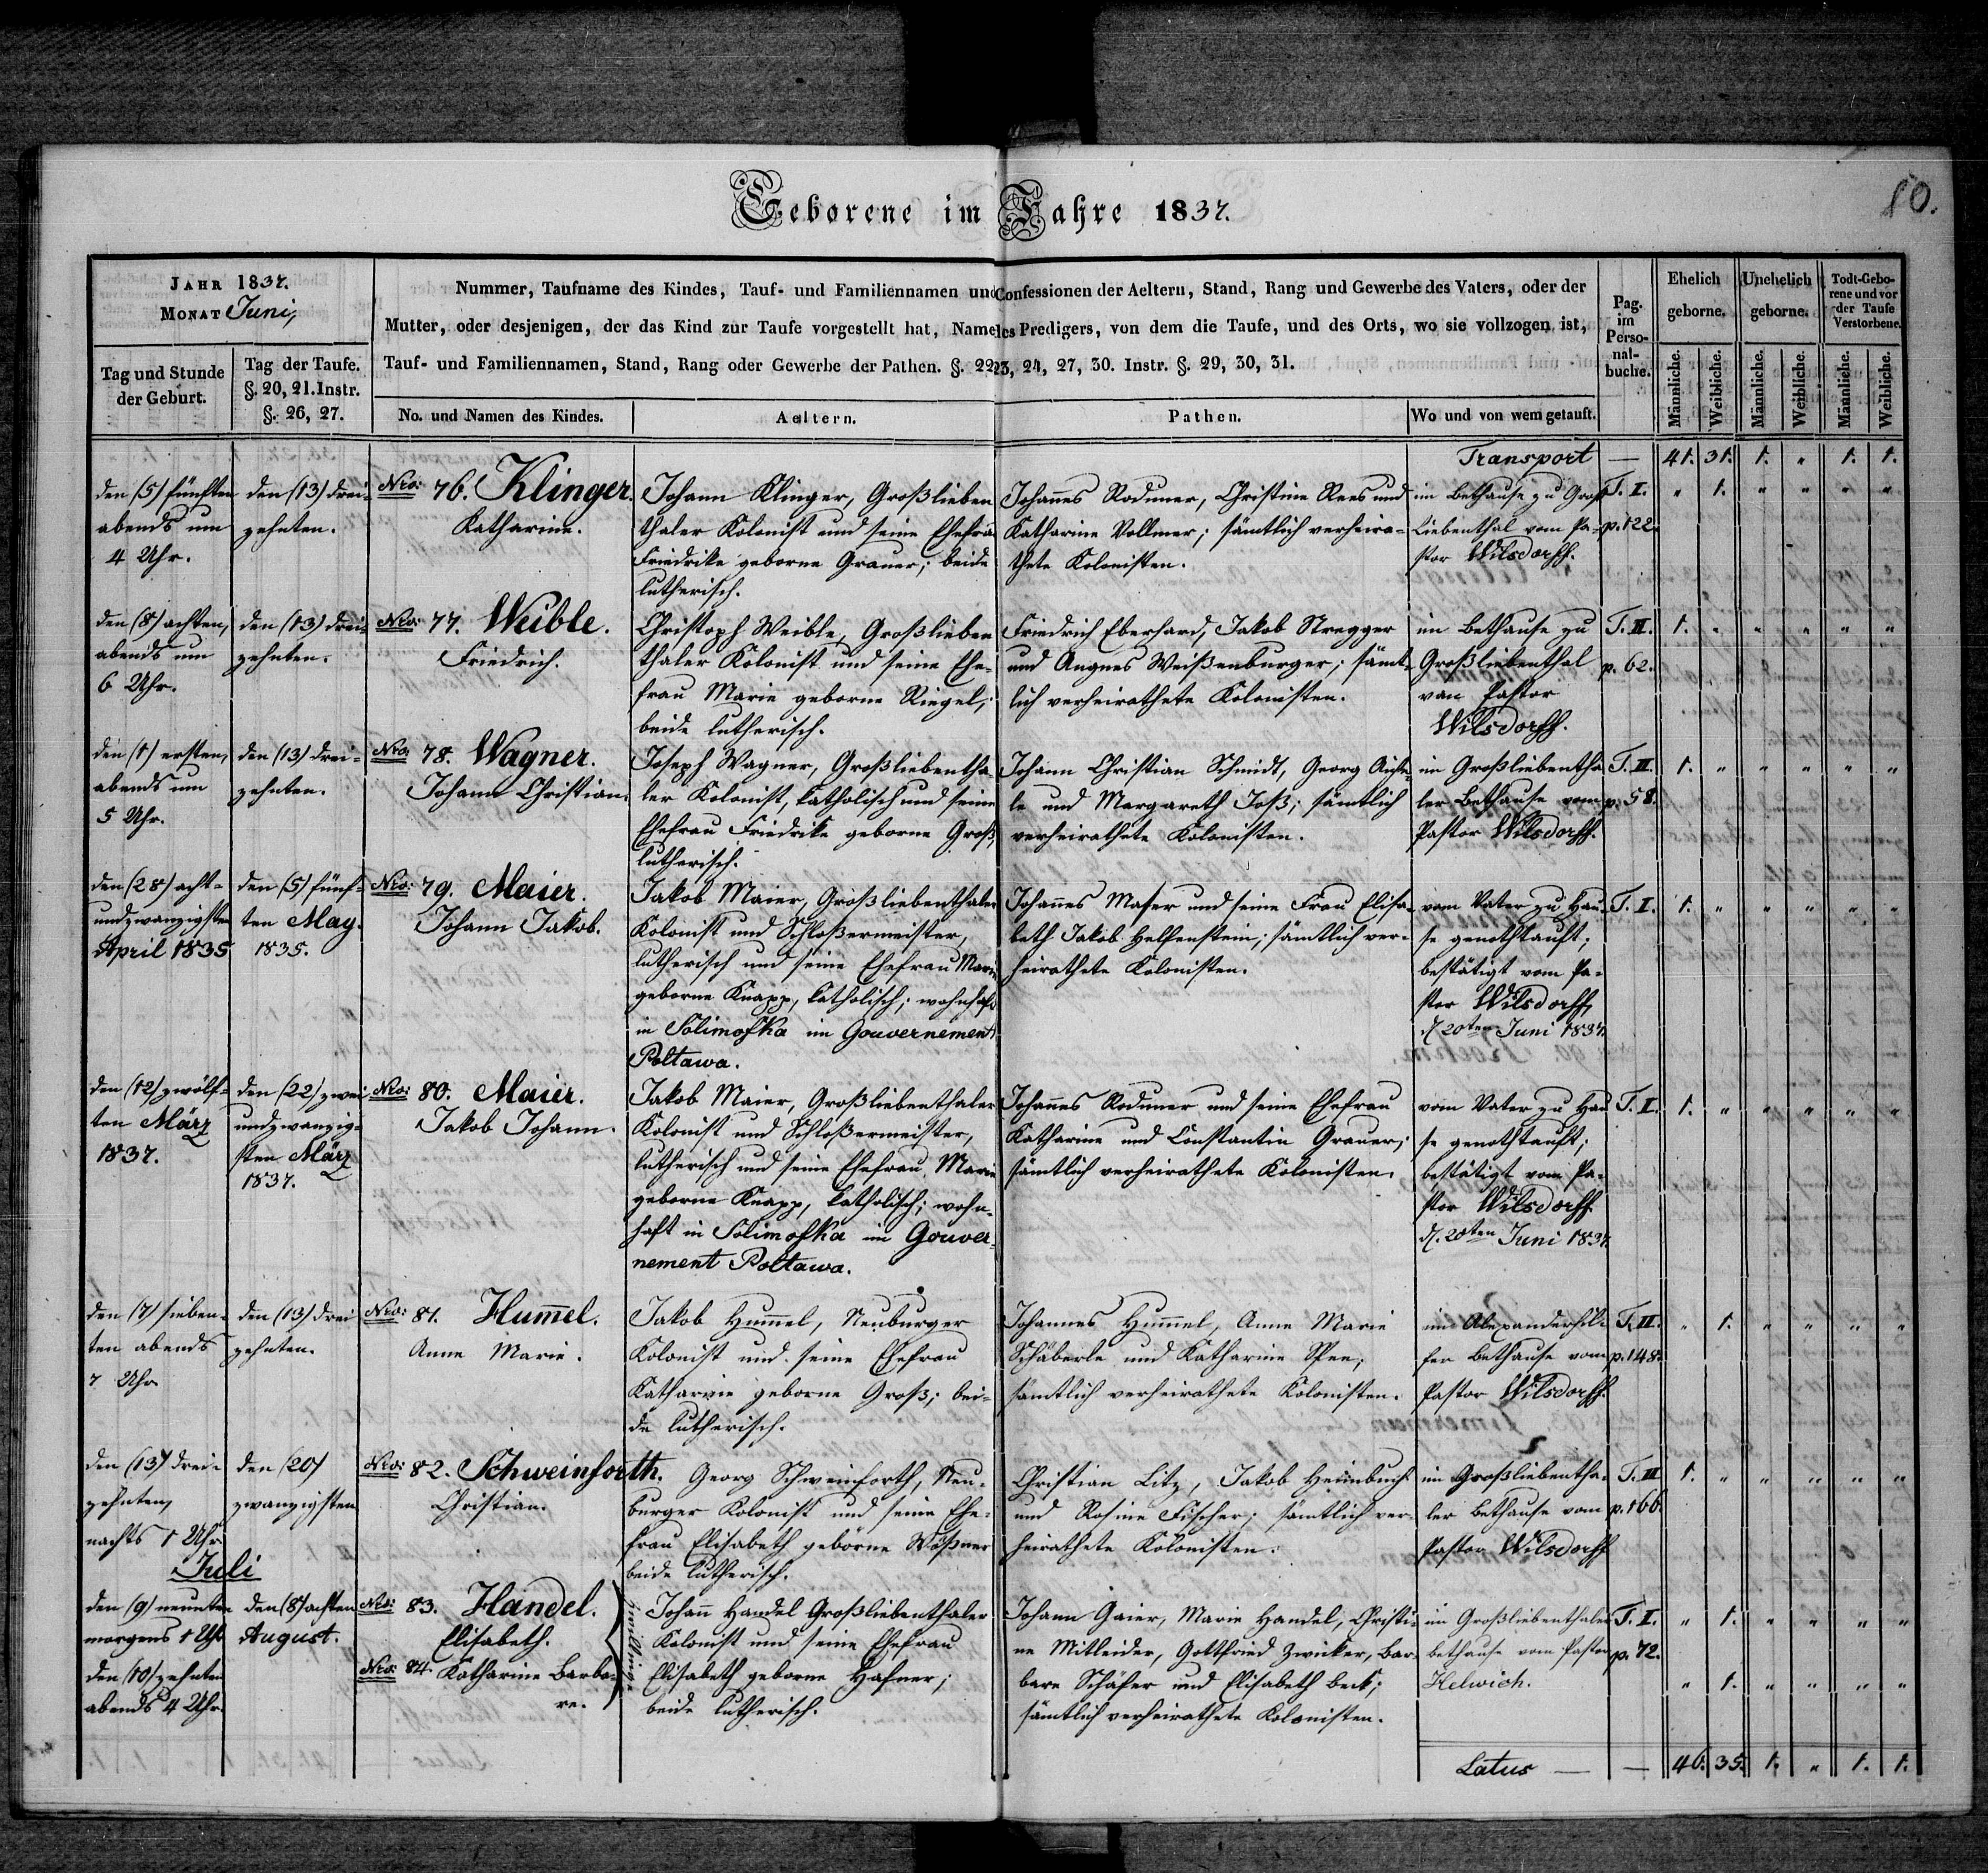 80.
Geborene im Jahre 1837.
JAHR 1837.
MONAT Juni,
Tag und Stunde
der Geburt.
Tag der Taufe.
§. 20, 21. Instr.
§. 26, 27.
Nummer, Taufname des Kindes, Tauf- und Familiennamen und Confessionen der Aeltern, Stand, Rang und Gewerbe des Vaters, oder der
Mutter, oder desjenigen, der das Kind zur Taufe vorgestellt hat, Name des Predigers, von dem die Taufe, und des Orts, wo sie vollzogen ist,
Tauf- und Familiennamen, Stand, Rang oder Gewerbe der Pathen. §. 22, 23, 24, 27, 30. Instr. §. 29, 30, 31.
No. und Namen des Kindes.
Aeltern.
Pathen.
Wo und von wem getauft.
Pag.
im
Perso-
nal-
buche.
Ehelich
geborne.
Unehelich
geborne.
Todt-Gebo-
rene und vor
der Taufe
Verstorbene.
Männliche.
Weibliche.
Männliche.
Weibliche.
Männliche.
Weibliche.
Transport — 41. 31. 1. " 1. 1.
den (5) fünften
abends um
4 Uhr.
den (13) drei-
zehnten.
Nro: 76. Klinger.
Katharine.
Johann Klinger, Großlieben
thaler Kolonist und seine Ehefrau
Friedrike geborne Grauer; beide
lutherisch.
Johannes Rodumer, Christine Rees und
Katharine Vollmer; sämtlich verheira-
thete Kolonisten.
im Bethause zu Groß
Liebenthal vom Pa-
stor Wilsdorff.
T. I.
p. 122.
" 1. " " " "
den (8) achten,
abends um
6 Uhr.
den (13) drei-
zehnten.
Nro: 77. Weible.
Friedrich.
Christoph Weible, Großlieben
thaler Kolonist und seine Ehe-
frau Marie geborne Riegel;
beide lutherisch.
Friedrich Eberhard, Jakob Stregger
und Augnes Weißenburger; sämt-
lich verheirathete Kolonisten.
im Bethause zu
Großliebenthal
von Pastor
Wilsdorff.
T. II.
p. 62.
1. " " " " "
den (1) ersten,
abends um
5 Uhr.
den (13) drei-
zehnten.
Nro: 78. Wagner.
Johann Christian.
Joseph Wagner, Großliebentha
ler Kolonist, katholisch und seine
Ehefrau Friedrike geborne Groß,
lutherisch.
Johann Christian Schmidt, Georg
le und Margareth Joß; sämtlich
verheirathete Kolonisten.
im Großliebentha
ler Bethause vom
Pastor Wilsdorff.
T. III.
p. 58.
1. " " " " "
den (28) acht-
undzwanzigsten
April 1835
den (5) fünf-
ten May.
1835.
Nro: 79. Maier.
Johann Jakob.
Jakob Maier, Großliebenthaler
Kolonist und Schloßermeister,
lutherisch und seine Ehefrau Marie
geborne Knapp, katholisch; wohnhaft
in Solimofka im Gouvernement
Poltawa.
Johannes Maser und seine Frau Elisa-
beth Jakob Helfenstein; sämtlich ver-
heirathete Kolonisten.
vom Vater zu Hau-
se genothtauft;
bestätigt vom Pa-
stor Wilsdorff,
d. 20ten Juni 1837.
T. I.
1. " " " " "
den (12) zwölf-
ten März
1837.
den (22) zwei
undzwanzig-
sten März
1837.
Nro: 80. Maier.
Jakob Johann.
Jakob Maier, Großliebenthaler
Kolonist und Schloßermeister,
lutherisch und seine Ehefrau Marie
geborne Knapp, katholisch; wohn-
haft in Solimofka im Gouver-
nement Poltawa.
Johannes Rodumer und seine Ehefrau
Katharine und Constantin Grauer;
sämtlich verheirathete Kolonisten.
vom Vater zu Hau
se genothtauft;
bestätigt vom Pa-
stor Wilsdorff.
d. 20ten Juni 1837.
T. I.
1. " " " " "
den (7) sieben-
ten abends
7 Uhr
den (13) drei
zehnten.
Nro: 81. Hummel.
Anne Marie.
Jakob Hummel, Neuburger
Kolonist und seine Ehefrau
Katharine geborne Groß; bei-
de lutherisch.
Johannes Hummel, Anne Marie
Schäberle und Katharine Spee;
sämtlich verheirathete Kolonisten.
im Alexanderhil-
fer Bethause vom
Pastor Wilsdorff.
T. II.
p. 148.
" 1. " " " "
den (13) drei-
zehnten,
nachts 1 Uhr
den (20)
zwanzigsten
Nro: 82. Schweinforth.
Christian.
Georg Schweinforth, Neu-
burger Kolonist und seine Ehe-
frau Elisabeth geborne Wößner
beide lutherisch.
Christian Litz, Jakob Heimbuch
und Rosine Fischer; sämtlich ver-
heirathete Kolonisten.
im Großliebentha-
ler Bethause vom
Pastor Wilsdorff
T. III
p. 166.
1. " " " " "
Juli
den (9) neunten
morgens 1 Uhr
den (10) zehnten
abends 4 Uhr.
den (8) achten
August.
Nro: 83. Handel.
Elisabeth.
Nro: 84. Katharine Barba-
re.
Zwillinge
Johann Handel Großliebenthaler
Kolonist und seine Ehefrau
Elisabeth geborne Hafner;
beide lutherisch.
Johann Gaier, Marie Handel, Christi-
ne Mitleider, Gottfried Zwicker, Bar-
bare Schäfer und Elisabeth Beck;
sämtlich verheirathete Kolonisten.
im Großliebenthaler
bethause vom Pastor
Helwich.
T. I.
p. 72.
" 1. " " " "
" 1. " " " "
Latus — — 46. 35. 1. " 1. 1.